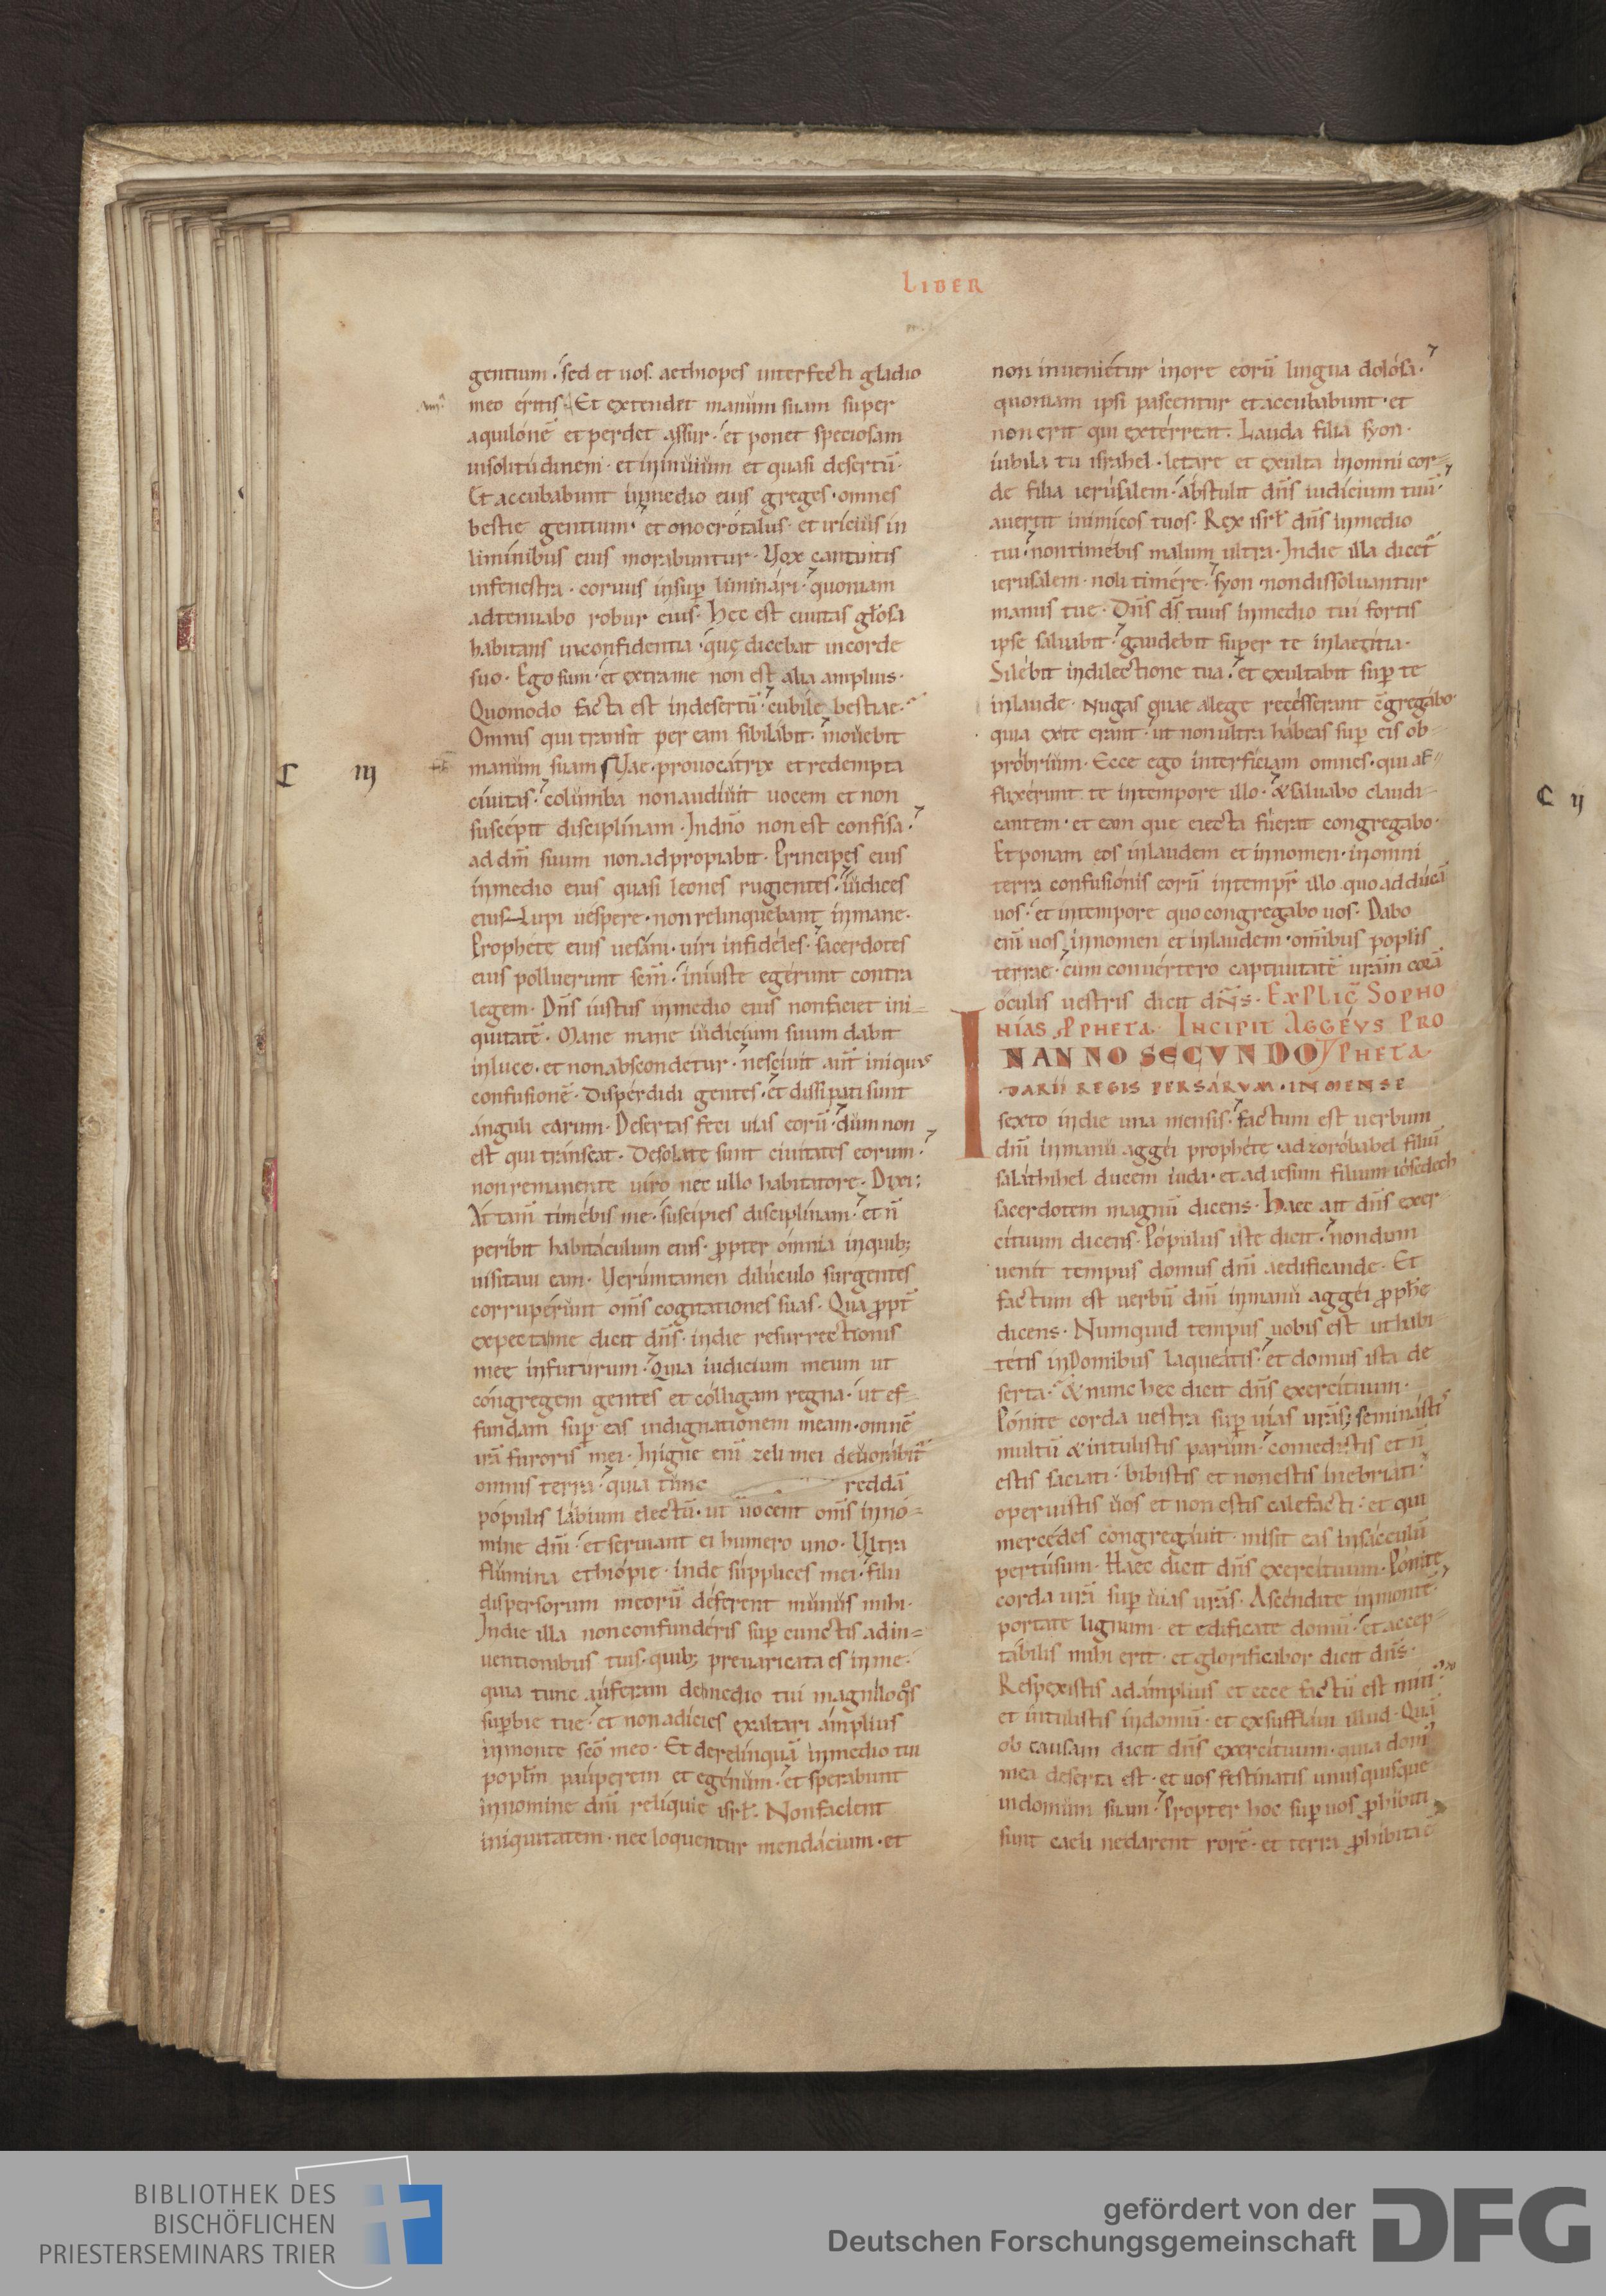 LIBER
gentium · sed et uos aethiopes interfecti gladio
meo eritis · Et extendet manum suam super
aquilonē et perdet assur · et ponet speciosam
insolitudinem · et ininuium et quasi desertū ·
Et accubabunt inmedio eius greges · omnes
bestie gentium · et onocrotalus · et iricius in
liminibus eius morabuntur · Uox cantantis
infenestra · coruus insup liminari · quoniam
adtenuabo robur eius · Hec est ciuitas gl̄osa
habitans inconfidentia · quę dicebat incorde
suo · Ego sum · et extrame non est alia amplius ·
Quomodo facta est indesertū · cubile bestiae ·
Omnis qui transit per eam sibilabit · mouebit
C iij manum suam Uae · prouocatrix et redempta
ciuitas · columba non audiuit uocem et non
suscepit disciplinam · Indn̄o non est confisa ·
ad dm̄ suum non adpropiabit · Principes eius
inmedio eius quasi leones rugientes · iudices
eius lupi uespere · non relinquebant inmane ·
Prophete eius uesani · uiri infideles · sacerdotes
eius polluerunt scm̄ · iniuste egerunt contra
legem · Dn̄s iustus inmedio eius non faciet ini=
quitatē · Mane mane iudicium suum dabit
inluce · et non abscondetur · nesciuit aut̄ iniquus
confusionē · Disperdidi gentes · et dissipati sunt
anguli earum · Desertas feci uias eorū · dum non
est qui transeat · Desolate sunt ciuitates eorum ·
non remanente uiro nec ullo habitatore · Dixi ;
At tam̄ timebis me · suscipies disciplinam · et n̄
peribit habitaculum eius · ꝓpter omnia inquib;
uisitaui eam · Uerumtamen diluculo surgentes
corruperunt om̄s cogitationes suas · Qua ꝓpt̄
expectame dicit dn̄s · indie resurrectionis
meę infuturum · Quia iudicium meum ut
congregem gentes et colligam regna · ut ef=
fundam sup eas indignationem meam · omnē
irā furoris mei · Inigne eni̅ zeli mei deuorabit̄
omnis terra · quia tunc reddā
populis labium electū · ut uocent om̄s inno=
mine dn̄i · et seruiant ei humero uno · Ultra
flumina ethiopię · inde supplices mei · filii
dispersorum meorū deferent munus mihi ·
Indie illa non confunderis sup cunctis adin=
uentionibus tuis · quib; preuaricata es inme ·
quia tunc auferam demedio tui magniloqos
supbie tue · et non adicies exaltari amplius
inmonte sc̄o meo · Et derelinquā inmedio tui
popl̄m pauperem et egenum · et sperabunt
innomine dn̄i reliquie isrl̄ · Non facient
iniquitatem · nec loquentur mendacium · et
non inuenietur inore eorū lingua dolosa ·
quoniam ipsi pascentur et accubabunt · et
non erit qui exterreat · Lauda filia syon ·
iubila tu israhel · letare et exulta inomni cor=
de filia ierusalem · abstulit dn̄s iudicium tuū ·
auertit inimicos tuos · Rex isrl̄ dn̄s inmedio
tui · non timebis malum ultra · Indie illa dicet̄
ierusalem · noli timere · syon · non dissoluantur
manus tue · Dn̄s ds̄ tuus inmedio tui fortis
ipse saluabit · gaudebit super te inlaetitia ·
Silebit indilectione tua · et exultabit sup te
inlaude · Nugas quae alege recesserant c̄gregabo ·
quia exte erant · ut non ultra habeas sup eis ob=
probrium · Ecce ego interficiam omnes · qui af=
flixerunt te intempore illo · & saluabo claudi=
C ij
cantem · et eam que eiecta fuerat congregabo ·
Et ponam eos inlaudem et innomen · inomni
terra confusionis eorū intempr̄ illo quo adducā
uos · et intempore quo congregabo uos · Dabo
eni̅ uos innomen et inlaudem · omībus popl̄is
terrae · cum conuertero captiuitatē uram̄ corā
oculis uestris dicit dn̄s · EXPLIC̄ SOPHO
NIAS PPHETA · INCIPIT AGGEVS PRO
IN ANNO SECVNDO PHETA ·
DARII REGIS PERSARVM · IN MENSE
sexto indie una mensis · factum est uerbum
dn̄i inmanu aggei prophete · ad zorobabel filiū
salathihel ducem iuda · et ad iesum filium iosedech
sacerdotem magnū dicens · Haec ait dn̄s exer=
cituum dicens · Populus iste dicit · nondum
uenit tempus domus dn̄i aedificande · Et
factum est uerbū dn̄i inmanu aggei ꝓphe
dicens · Numquid tempus uobis est uthabi=
tetis indomibus laqueatis · et domus ista de
serta · & nunc hec dicit dn̄s exercituum ·
Ponite corda uestra sup uias urās ; seminastis
multū & intulistis parum · comedistis et n̄
estis saciati · bibistis et non estis inebriati ·
operuistis uos et non estis calefacti · et qui
mercedes congregauit · misit eas insacculū
pertusum · Haec dicit dn̄s exercituum · Ponite
corda urā sup uias urās · Ascendite inmontē ·
portate lignum · et edificate domū · et accep=
tabilis mihi erit · et glorificabor dicit dn̄s ·
Respexistis ad amplius et ecce factū est min̄ ·
et intulistis indomū · et exsufflaui illud · Quā
ob causam dicit dn̄s exercituum · quia dom̄
mea deserta est · et uos festinatis unusquisque
indomum suam · Propter hoc sup uos ꝓhibiti
sunt caeli nedarent rorē · et terra ꝓhibita e
BIBLIOTHEK DES
BISCHÖFLICHEN
PRIESTERSEMINARS TRIER
gefördert von der
Deutschen Forschungsgemeinschaft
DFG